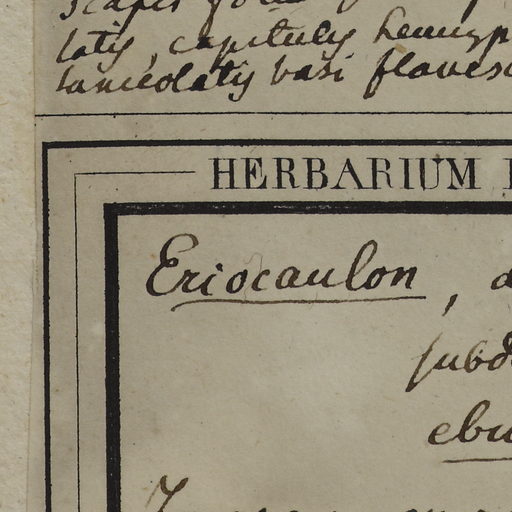 scapis
latis, capitulis hemisp
lanceolatis basi flavesc
HERBARIUM
Eriocaulon, a
subd
ebu